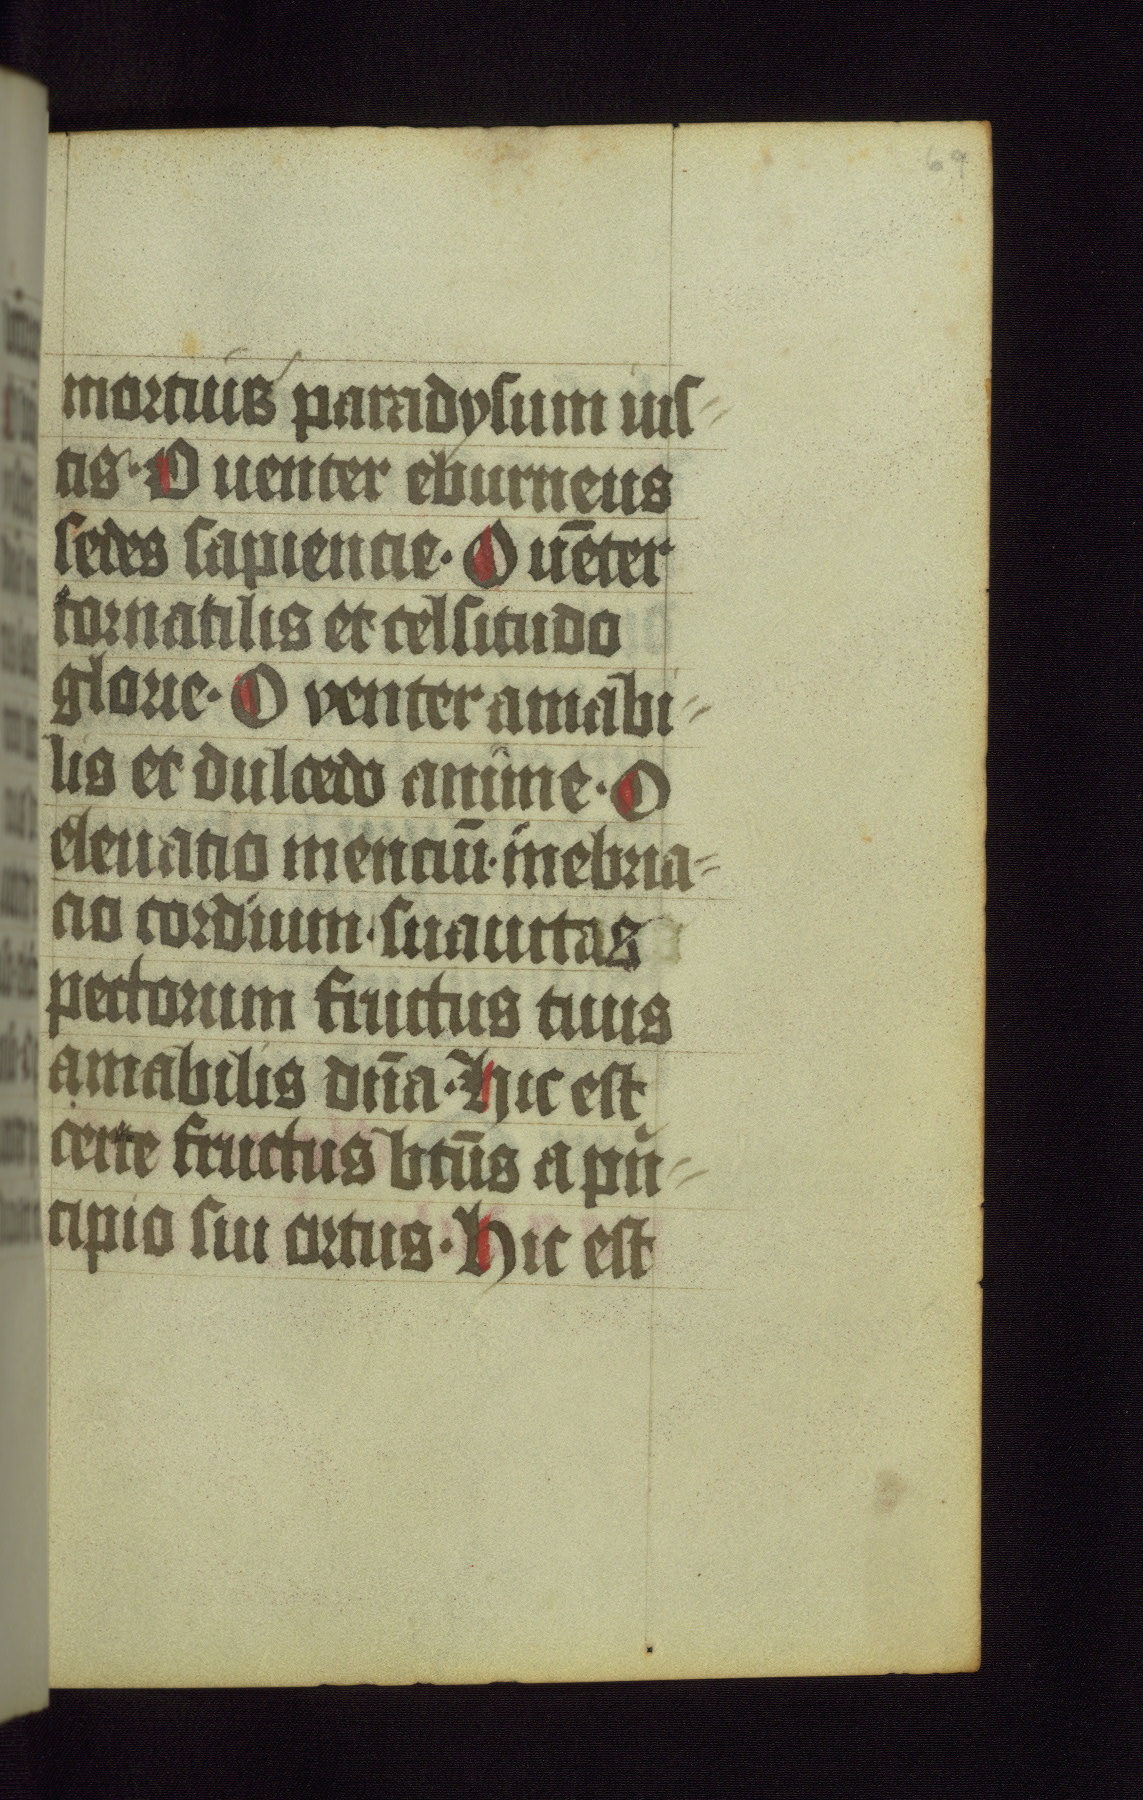 69
mortuis paradysum ius-
tis. O uenter eburneus
sedes sapiencie. O uēter
tornatilis et celsitudo
glorie. O venter amabi-
lis et dulcedo anime. O
eleuatio menciū. inebria-
cio cordium. suauitas
pectorum fructus tuus
amabilis dn̄a. Hic est
certe fructus btūs a pri-
cipio sui ortus. Hic est